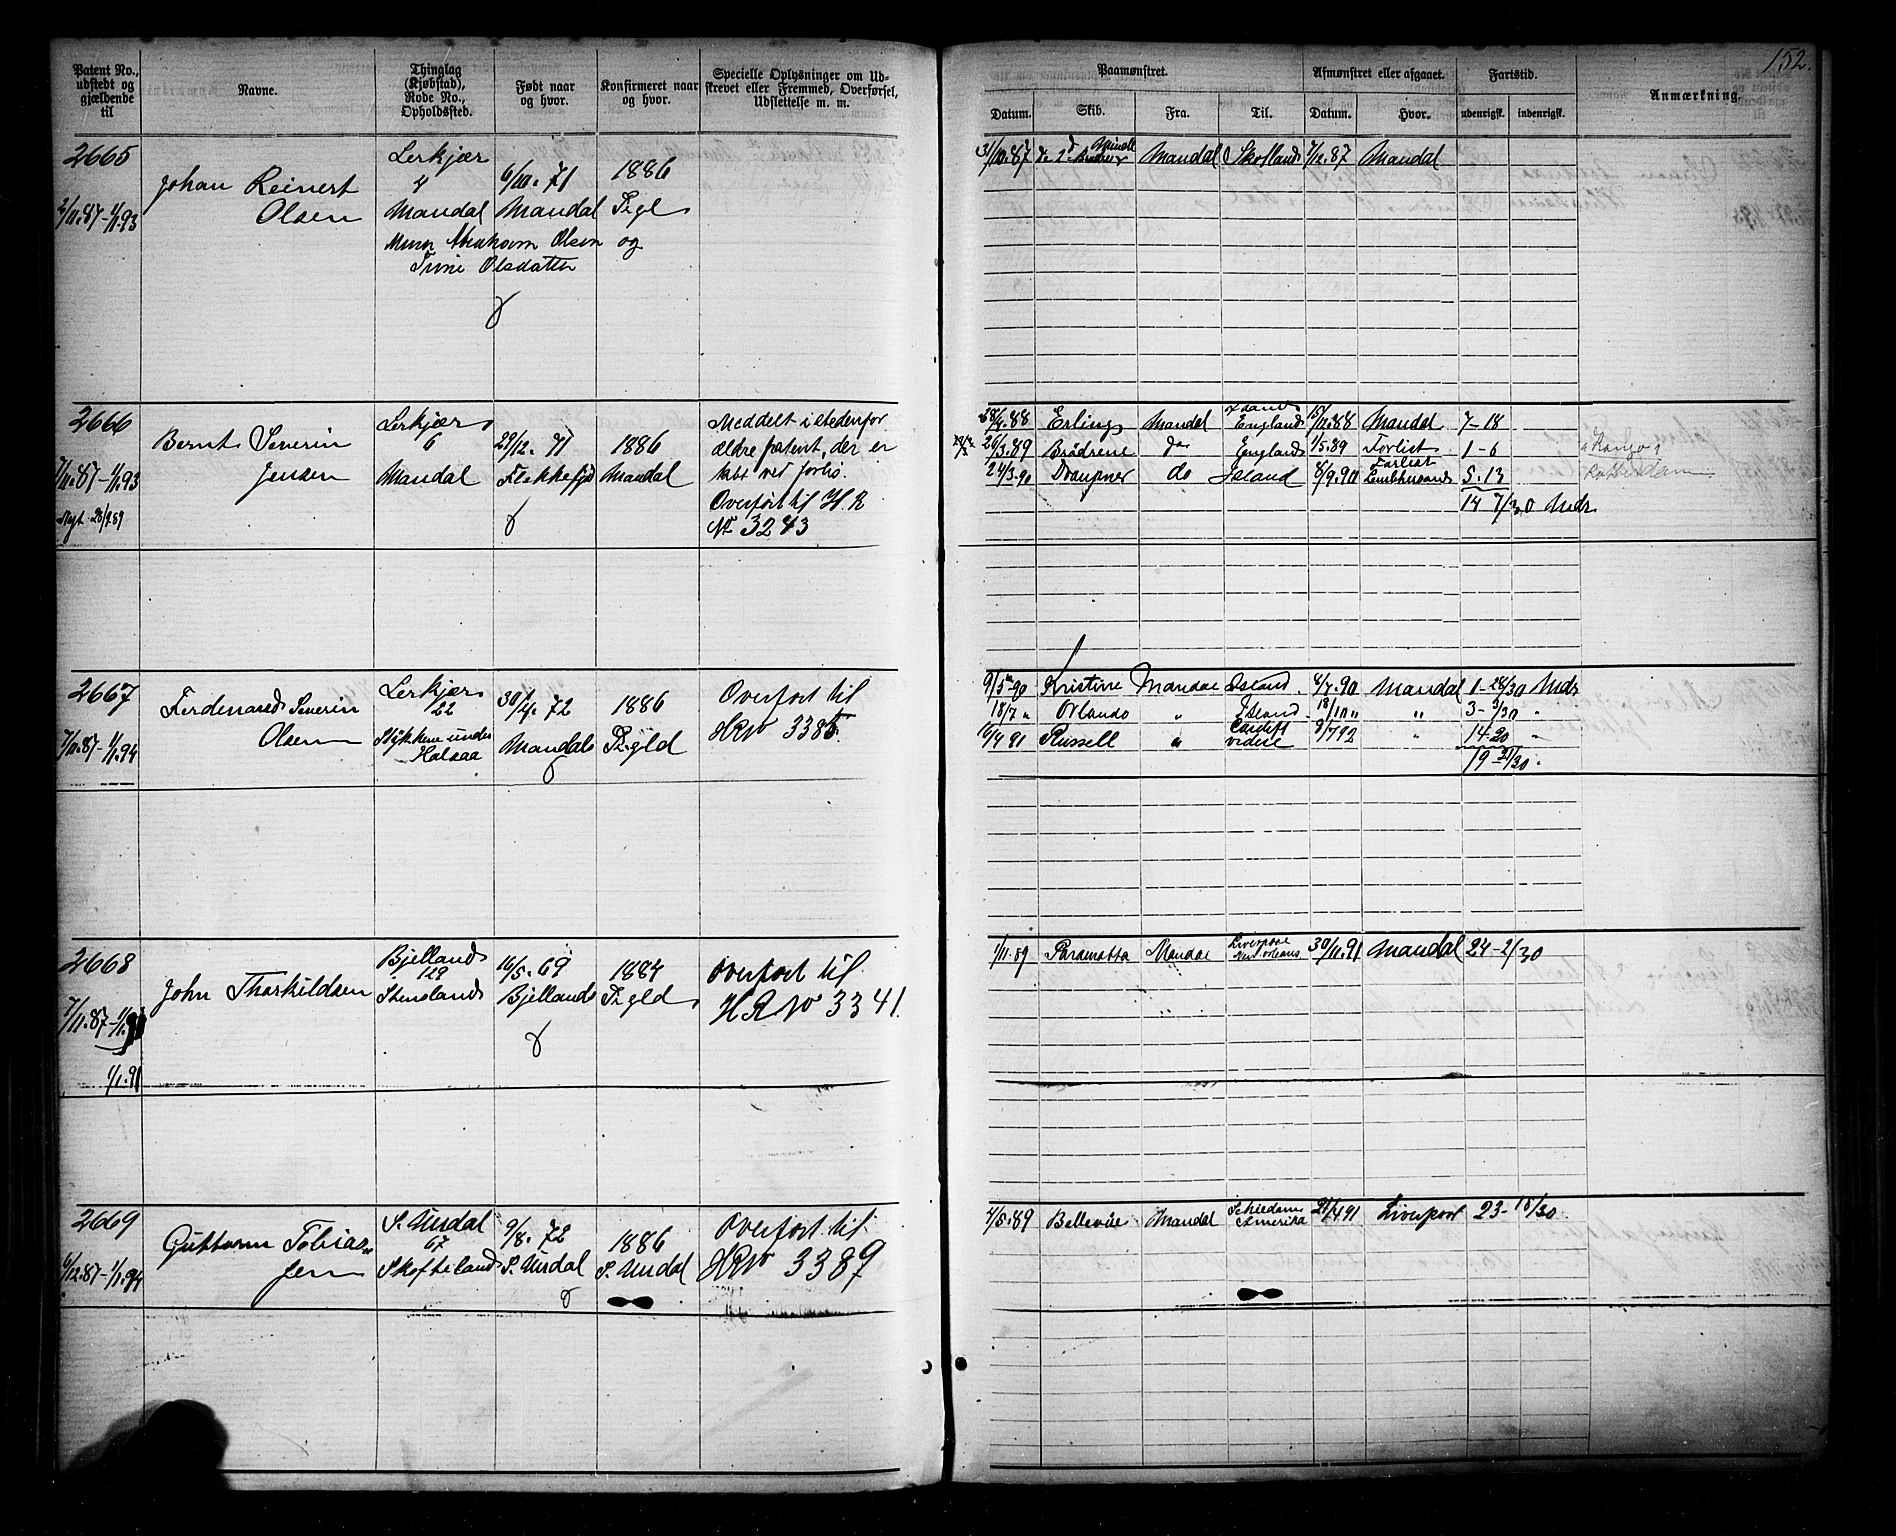 152.
Patent No., udstedt og gjældende til
Navne.
Thinglag (Kjøbstad), Rode No., Opholdssted.
Født naar og hvor.
Konfirmeret naar og hvor.
Specielle Oplysninger om Udskrevet eller Fremmed, Overførsel, Udslettelse m. m.
Paamønstret.
Afmønstret eller afgaaet.
Fartstid.
Anmærkning.
Datum.
Skib.
Fra.
Til.
Datum.
Hvor.
udenrigsk.
indenrigsk.
2665
2/11.87-1/1.93
Johan Reinert
Olsen
Lerkjær
4
Mandal
6/10.71
Mandal
1886
Abraham Olsen og
Trine Olsdatter
Mandal Skotland 7/12.87 Mandal
2666
7/11.87-1/1.93
Bernt Severin
Jensen
Lerkjær
6
Mandal
29/12.71
Flekkefjd
1886
Mandal
Meddelt istedenfor
ældre patent, der er
tabt ved forlis.
Overført til H.R
No 3243
Erling Mandal England 15/11.88 Mandal 7-18
26/3.89 Brødrene do England 1/5.89 Forlist 1-6
24/3.90 Draupner do Island 8/9.90 Forlist 5.13
14 7/30 Mdr
Rotterdam
2667
7/11.87-1/1.94
Ferdenand Severin
Olsen
Lerkjær
22
Stykkene under
Halsaa
30/4.72
Mandal
1886
Tregld
Overført til
HRNo 3385
9/5.90 Kristine Mandal Island 4/7.90 Mandal 1-28/30 Mdr
18/7 " Orlando " Island 18/10 " " 3-3/30 "
Russell " Cardiff videre 9/7 92 " 14-20 "
19-21/30 "
2668
7/11.87-1/1.90
1/1.91
John Thorkildsen
Bjelland
129
Stensland
16/5.69
Bjelland
1884
Tregld
Overført til
HR No 3341.
1/11.89 Paramatta Mandal Liverpool New Orleans 30/11.91 Mandal 24-2/30
2669
6/12.87-1/1.94
Guttorm Tobias-
sen
S. Undal
67
Skofteland
9/8.72
S. Undal
1886
S. Undal
Overført til
HRNo 3389
4/5.89 Bellevue Mandal Schiedam Amerika 21/4.91 Liverpool 23-18/30